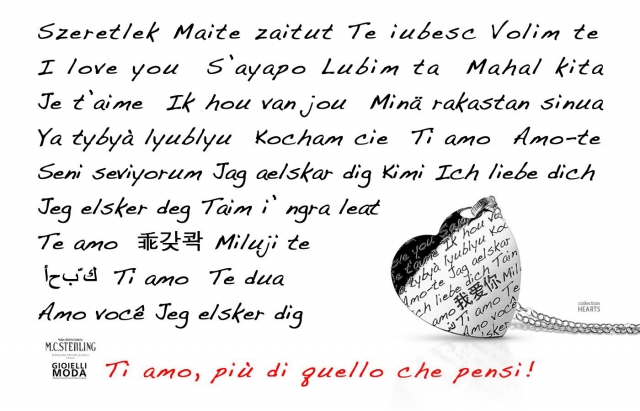 Szeretlek Maite zaitut Te iubesc Volim te
I love you S'ayapo Lubim ta Mahal kita
Je t'aime Ik hou van jou Minä rakastan sinua
Ya tybyà lyublyu Kocham cie Ti amo Amo-te
Seni seviyorum Jag aelskar dig Kimi Ich liebe dich
Jeg elsker deg Taim i' ngra leat
Te amo 乖갖콱 Miluji te
ك ّبحأ Ti amo Te dua
Amo você Jeg elsker dig
you
t'aime Ik hou
tybyà lyublyu Ko
Amo-te Jag aelskar
ch liebe dich Taim
amo 我爱你 Mil
Ti amo Te
Amo você
Jeg elsker
collection
HEARTS
M.C.STERLING
GIOIELLI
MODA
Ti amo, più di quello che pensi!